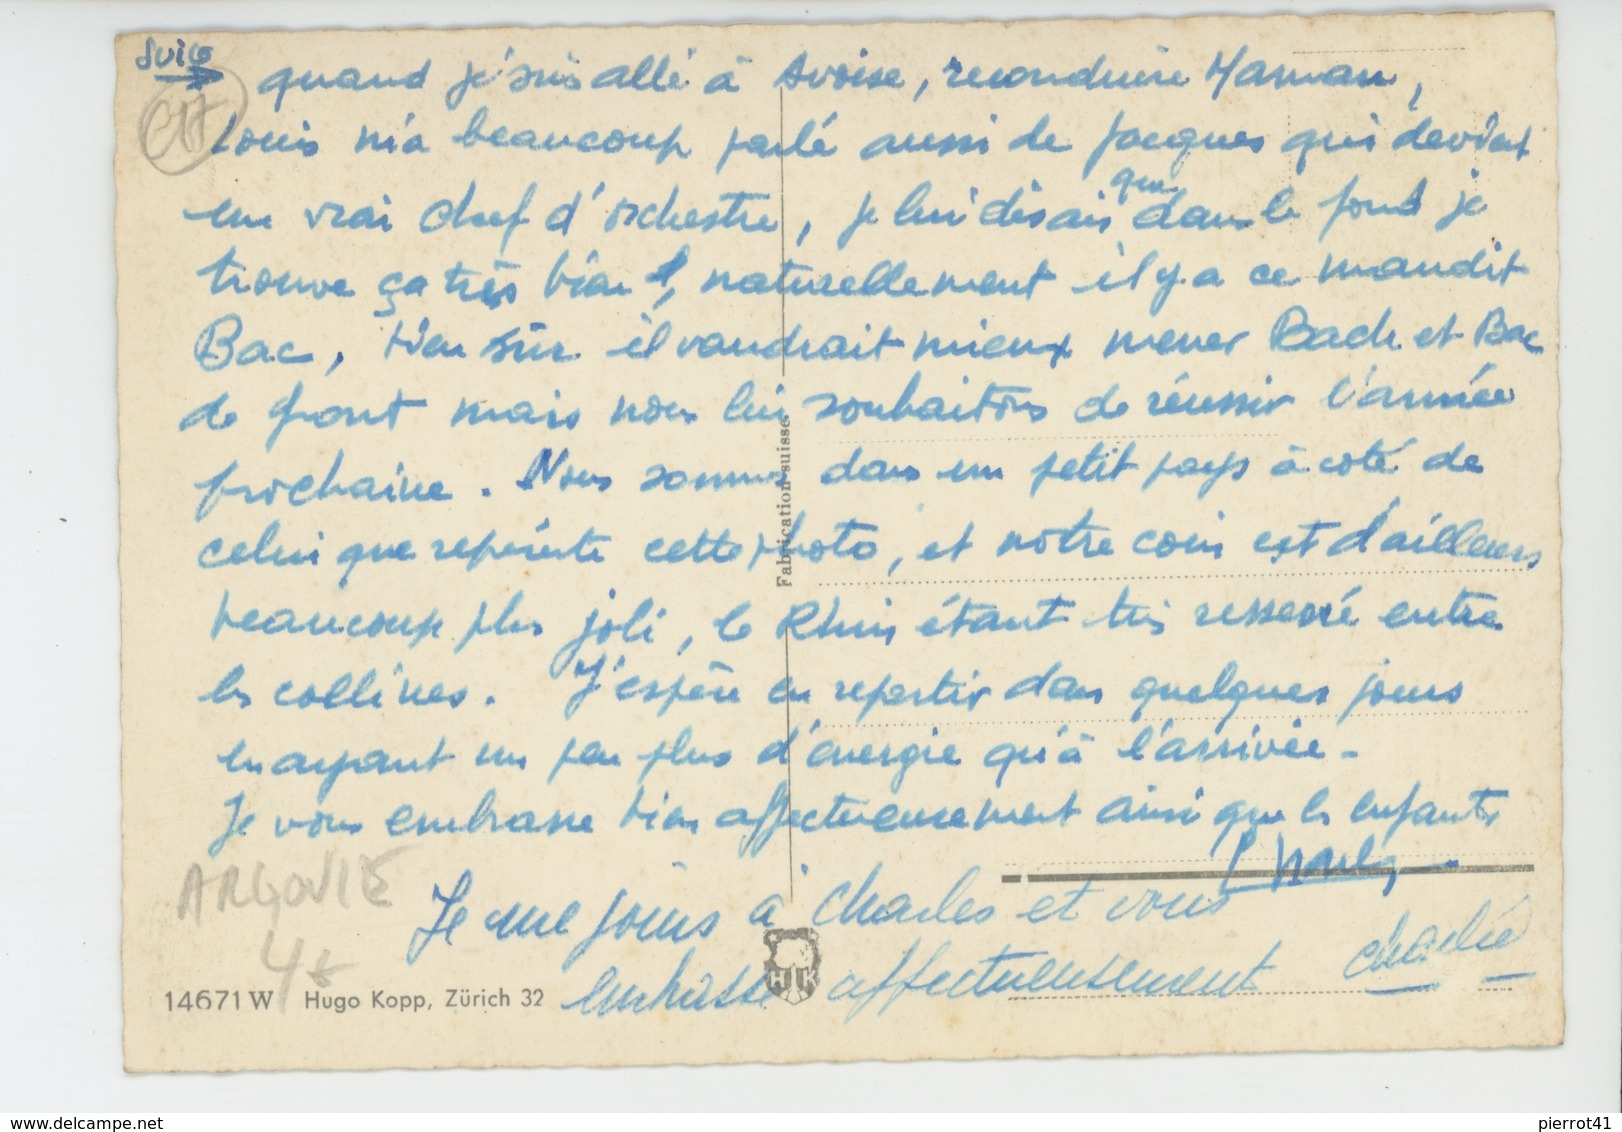 Suite
CH
quand je suis allé à Avoise, reconduire Maman,
Louis m'a beaucoup parlé aussi de Jacques qui devient
un vrai chef d'orchestre, je lui disais que dans le fond je
trouve ça très bien, naturellement il y a ce maudit
Bac, bien sûr il vaudrait mieux mener Bach et Bac
de front mais nous lui souhaitons de réussir l'année
prochaine. Nous sommes dans un petit pays à coté de
celui que représente cette photo, et notre coin est d'ailleurs
beaucoup plus joli, le Rhin étant très resserré entre
les collines. J'espère en repartir dans quelques jours
en ayant un peu plus d'énergie qu'à l'arrivée -
Je vous embrasse bien affectueusement ainsi que les enfants
Charles
Je me joins à Charles et vous
embrasse affectueusement
ARGOVIE
Fabrication suisse
HK
14671 W Hugo Kopp, Zürich 32
pierrot41